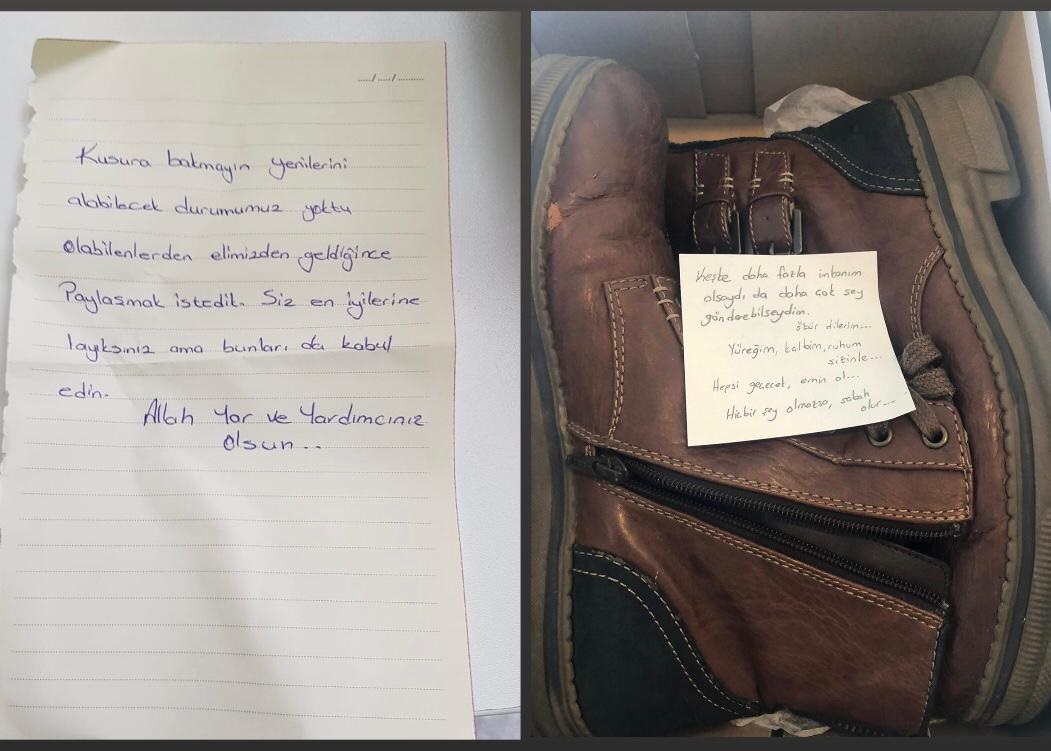 ..../..../.........
Kusura bakmayın yenilerini
alabilecek durumumuz yoktu
olabilenlerden elimizden geldiğince
Paylaşmak istedik. Siz en iyilerine
layıksınız ama bunları da kabul
edin.
Allah Yar ve Yardımcınız
olsun...
Keşke daha fazla imkanım
olsaydı da daha çok şey
gönderebilseydim.
özür dilerim...
Yüreğim, kalbim, ruhum
sizinle...
Hepsi geçecek, emin ol...
Hiçbir şey olmazsa, sabah
olur...